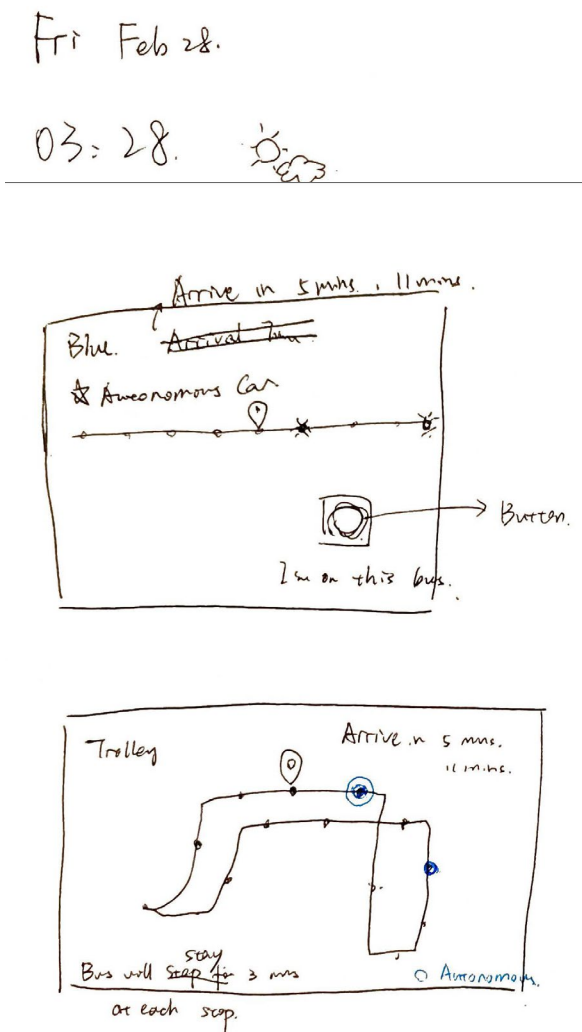 Fri Feb 28.
03:28.
Arrive in 5 mins. , 11 mins.
Blue. Arrival Time
☆ Aweonomous Car
Button.
I'm on this bus.
Trolley
Arrive in 5 mins.
11 mins.
stay
Bus will stop for 3 mins
at each stop.
Autonomous.